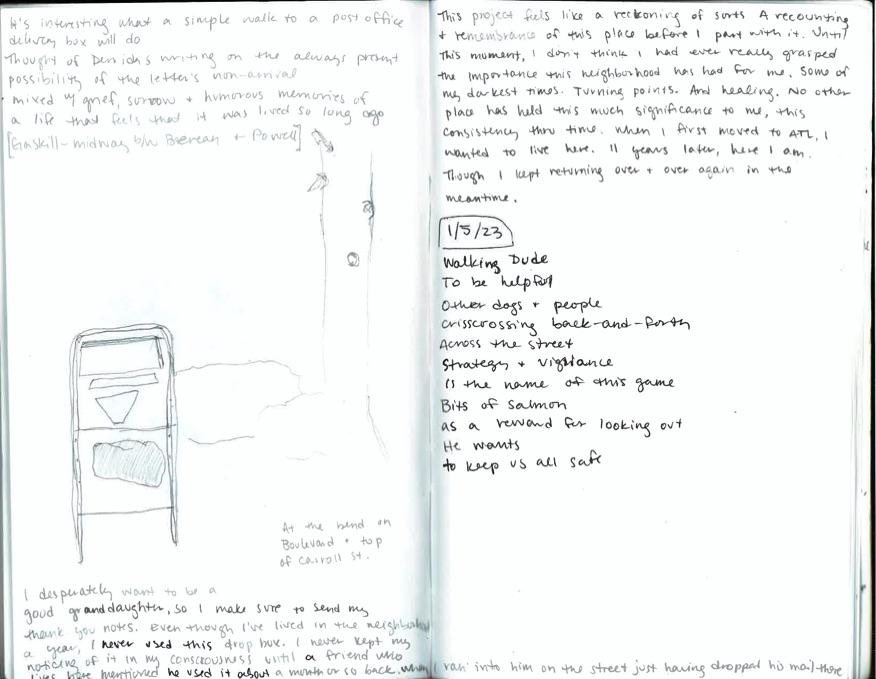 It's interesting what a simple walk to a post office
delivery box will do
Thought of Derrida's writing on the always present
possibility of the letter's non-arrival
mixed w/ grief, sorrow + humorous memories of
a life that feels that it was lived so long ago
[Gaskill-midway b/w Berean + Powell]
At the bend on
Boulevard + top
of Carroll St.
I desperately want to be a
good granddaughter, so I make sure to send my
thank you notes. Even though I've lived in the neighborhood
a year, I never used this drop box. I never kept my
noticing of it in my consciousness until a friend who
lives here mentioned he used it about a month or so back. when I ran into him on the street just having dropped his mail there
This project feels like a reckoning of sorts A recounting
+ remembrance of this place before I part with it. Until
this moment, I don't think I had ever really grasped
the importance this neighborhood has had for me. Some of
my darkest times. Turning points. And healing. No other
place has held this much significance to me, this
consistency thru time. When I first moved to ATL, I
wanted to live here. 11 years later, here I am.
Though I kept returning over + over again in the
meantime.
1/5/23
Walking Dude
To be helpful
Other dogs + people
crisscrossing back-and-forth
Across the street
Strategy + vigilance
Is the name of this game
Bits of salmon
as a reward for looking out
He wants
to keep us all safe